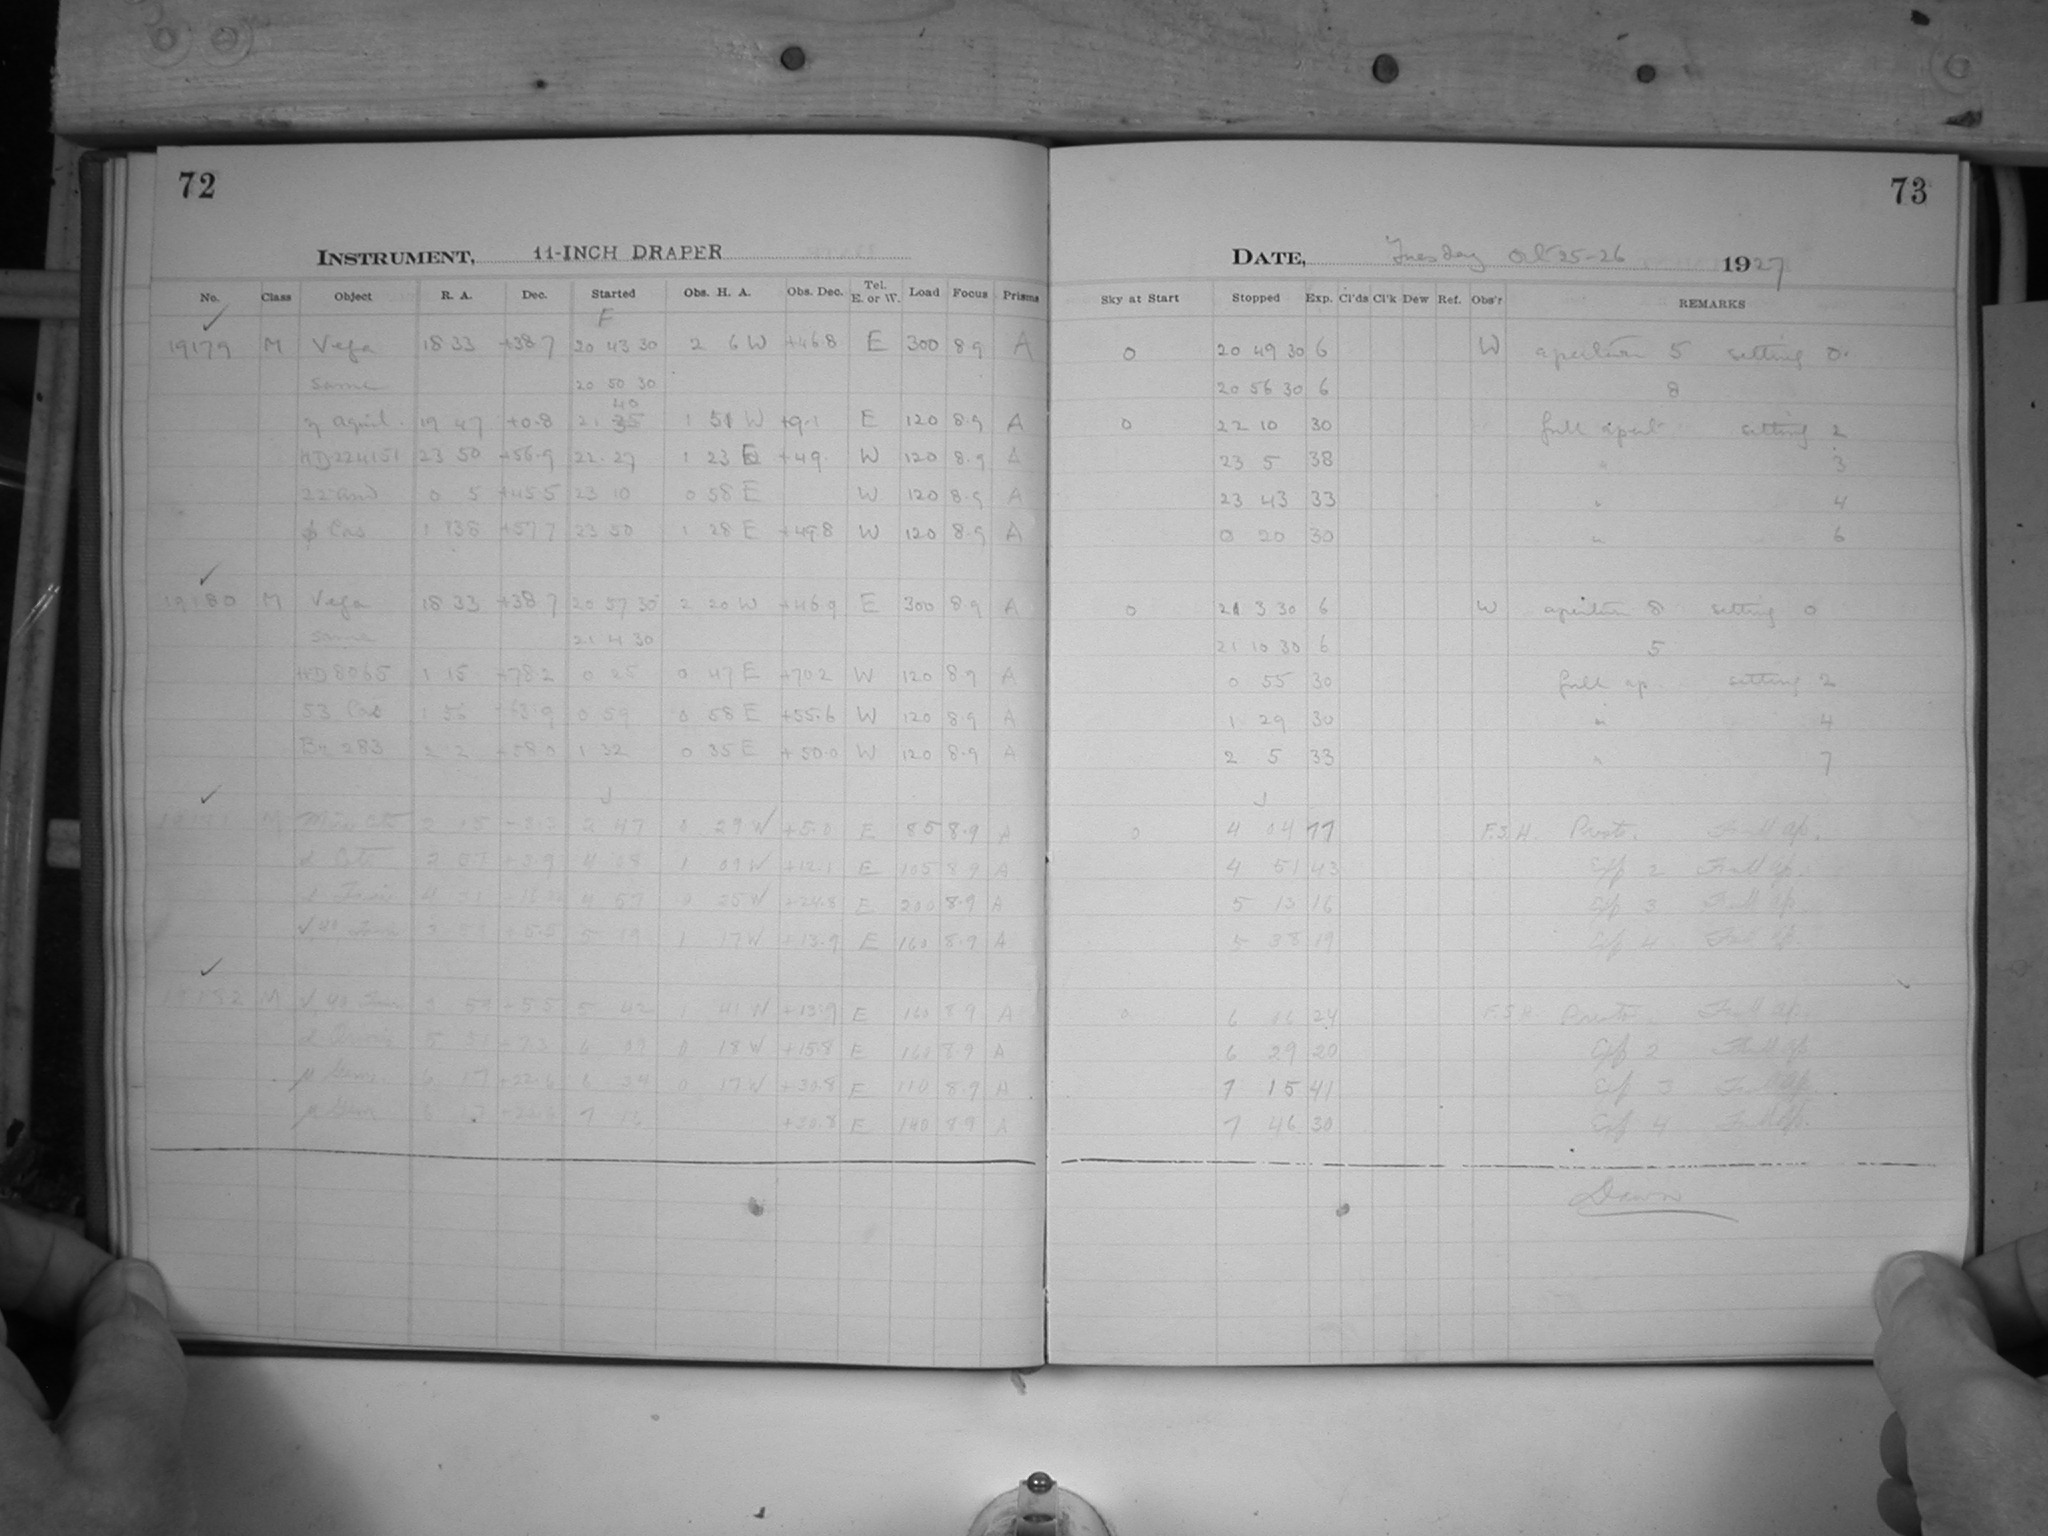 72
INSTRUMENT, 11-INCH DRAPER
No. Class Object R. A. Dec. Started Obs. H. A. Obs. Dec. Tel. E. or W. Load Focus Prisms
F
19179 M Vega 18 33 +38.7 20 43 30 2 6 W +46.8 E 300 8.9 A
same 20 50 30
40
η Aquil. 19 47 +0.8 21 35 1 51 W +9.1 E 120 8.9 A
HD224151 23 50 +56.9 22 27 1 23 E +49. W 120 8.9 A
22 And 0 5 +45.5 23 10 0 58 E W 120 8.9 A
φ Cas 1 13 +57.7 23 50 1 28 E +49.8 W 120 8.9 A
19180 M Vega 18 33 +38.7 20 57 30 2 20 W +46.9 E 300 8.9 A
same 21 4 30
HD8065 1 15 +78.2 0 25 0 47 E +70.2 W 120 8.9 A
53 Cas 1 56 +63.9 0 59 0 58 E +55.6 W 120 8.9 A
Br 283 2 2 +58.0 1 32 0 35 E +50.0 W 120 8.9 A
J
M 2 47 0 29 W +5.0 E 85 8.9 A
α Cet 2 57 +3.9 4 08 1 09 W +12.1 E 105 8.9 A
α 4 31 4 57 0 25 W +24.8 E 200 8.9 A
5 19 1 17 W +13.9 E 160 8.9 A
19182 M +5.5 5 42 1 41 W +13.9 E 160 8.9 A
α 5 51 +7.3 6 09 0 18 W +15.8 E 160 8.9 A
μ Gem. 6 17 +22.6 6 34 0 17 W +30.8 E 110 8.9 A
μ Gem 6 17 7 16 +30.8 E 140 8.9 A
73
DATE, Tuesday Oct 25-26 1927
Sky at Start Stopped Exp. Cl'ds Cl'k Dew Ref. Obs'r REMARKS
0 20 49 30 6 W aperture 5 setting 0.
20 56 30 6 8
0 22 10 30 full apert setting 2
23 5 38 " 3
23 43 33 " 4
0 20 30 " 6
0 21 3 30 6 W aperture 8 setting 0
21 10 30 6 5
0 55 30 full ap. setting 2
1 29 30 " 4
2 5 33 " 7
J
0 4 04 77 F.S.H. Full ap.
4 51 43 Exp 2 Full ap.
5 13 16 Exp 3 Full ap.
5 38 19 Exp 4 Full ap.
0 6 16 24 F.S.H. Full ap.
6 29 20 Exp 2 Full ap
7 15 41 Exp 3 Full ap
7 46 30 Exp 4 Full ap.
Dawn